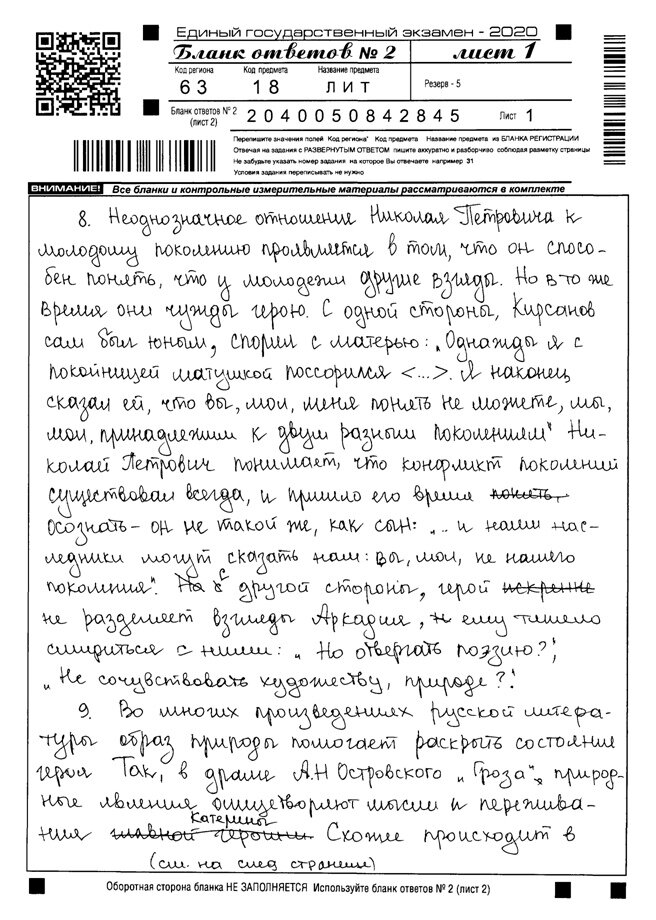 Единый государственный экзамен - 2020
Бланк ответов № 2 лист 1
Код региона Код предмета Название предмета
63 18 ЛИТ Резерв - 5
Бланк ответов № 2 (лист 2) 2040050842845 Лист 1
Перепишите значения полей Код региона" Код предмета Название предмета из БЛАНКА РЕГИСТРАЦИИ
Отвечая на задания с РАЗВЕРНУТЫМ ОТВЕТОМ пишите аккуратно и разборчиво соблюдая разметку страницы
Не забудьте указать номер задания на которое Вы отвечаете например 31
Условия задания переписывать не нужно
ВНИМАНИЕ! Все бланки и контрольные измерительные материалы рассматриваются в комплекте
8. Неоднозначное отношение Николая Петровича к
молодому поколению проявляется в том, что он спосо-
бен понять, что у молодежи другие взгляды. Но в то же
время они чужды герою. С одной стороны, Кирсанов
сам был юным, спорил с матерью: „Однажды я с
покойницей матушкой поссорился <...>. Я наконец
сказал ей, что вы, мол, меня понять не можете, мы,
мол, принадлежим к двум разным поколениям" Ни-
колай Петрович понимает, что конфликт поколений
существовал всегда, и пришло его время понять
осознать - он не такой же, как сын: „... и наши нас-
ледники могут сказать нам: вы, мол, не нашего
поколения". На с другой стороны, герой искренне
не разделяет взгляды Аркадия, и ему тяжело
смириться с ними: „Но отвергать поэзию?",
„Не сочувствовать художеству, природе?".
9. Во многих произведениях русской литера-
туры образ природы помогает раскрыть состояние
героя Так, в драме А.Н Островского „Гроза" природ-
ные явления олицетворяют мысли и пережива-
ния главной героини Катерины Схожее происходит в
(см. на след странице)
Оборотная сторона бланка НЕ ЗАПОЛНЯЕТСЯ Используйте бланк ответов № 2 (лист 2)